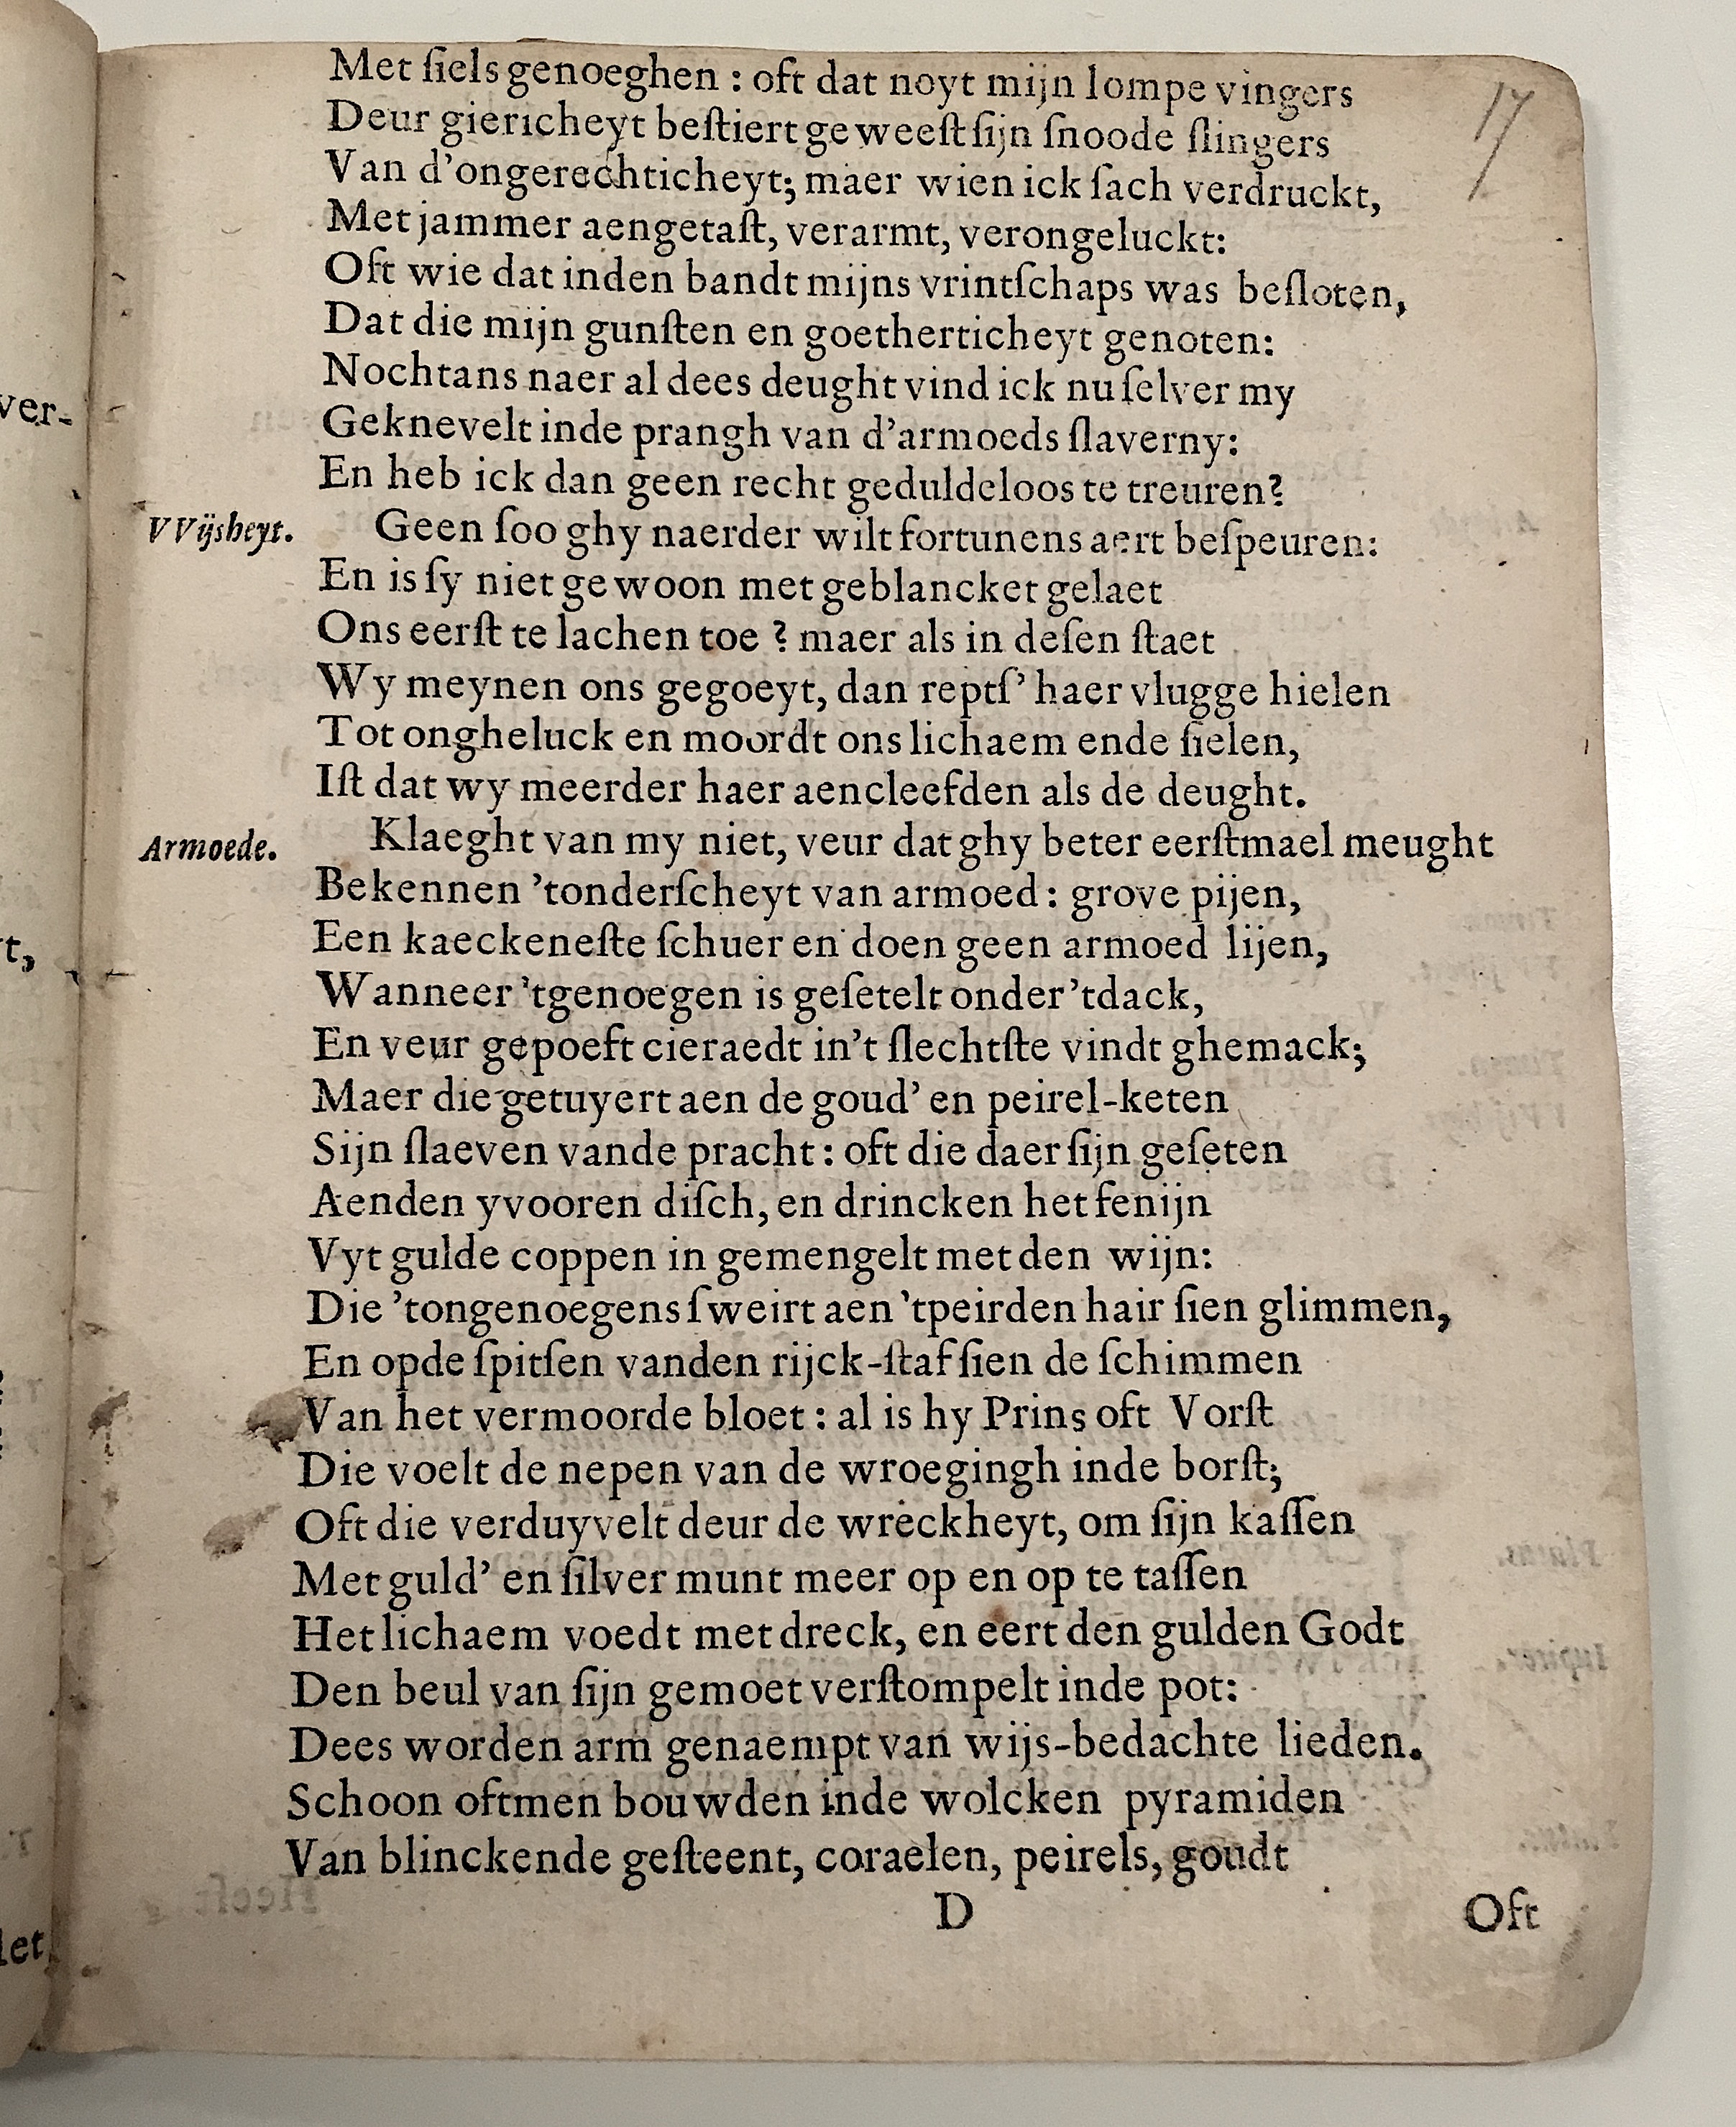 Met ſiels genoeghen : oft dat noyt mijn lompe vingers
17
Deur giericheyt beſtiert geweeſt ſijn ſnoode ſlingers
Van d'ongerechticheyt; maer wien ick ſach verdruckt,
Met jammer aengetaſt, verarmt, verongeluckt:
Oft wie dat inden bandt mijns vrintſchaps was beſloten,
Dat die mijn gunſten en goetherticheyt genoten:
Nochtans naer al dees deught vind ick nu ſelver my
ver-
Geknevelt inde prangh van d'armoeds ſlaverny:
En heb ick dan geen recht geduldeloos te treuren?
VVijsheyt. Geen ſoo ghy naerder wilt fortunens aert beſpeuren:
En is ſy niet gewoon met geblancket gelaet
Ons eerſt te lachen toe ? maer als in deſen ſtaet
Wy meynen ons gegoeyt, dan reptſ' haer vlugge hielen
Tot ongheluck en moordt ons lichaem ende ſielen,
Iſt dat wy meerder haer aencleefden als de deught.
Armoede. Klaeght van my niet, veur dat ghy beter eerſtmael meught
Bekennen 'tonderſcheyt van armoed : grove pijen,
Een kaeckeneſte ſchuer en doen geen armoed lijen,
t,
Wanneer 'tgenoegen is geſetelt onder 'tdack,
En veur gepoeft cieraedt in't ſlechtſte vindt ghemack;
Maer die getuyert aen de goud' en peirel-keten
Sijn ſlaeven vande pracht : oft die daer ſijn geſeten
Aenden yvooren diſch, en drincken het fenijn
Vyt gulde coppen in gemengelt met den wijn:
Die 'tongenoegens ſweirt aen 'tpeirden hair ſien glimmen,
En opde ſpitſen vanden rijck-ſtaf ſien de ſchimmen
Van het vermoorde bloet : al is hy Prins oft Vorſt
Die voelt de nepen van de wroegingh inde borſt;
Oft die verduyvelt deur de wreckheyt, om ſijn kaſſen
Met guld' en ſilver munt meer op en op te taſſen
Het lichaem voedt met dreck, en eert den gulden Godt
Den beul van ſijn gemoet verſtompelt inde pot:
Dees worden arm genaempt van wijs-bedachte lieden.
Schoon oftmen bouwden inde wolcken pyramiden
Van blinckende geſteent, coraelen, peirels, goudt
D Oft